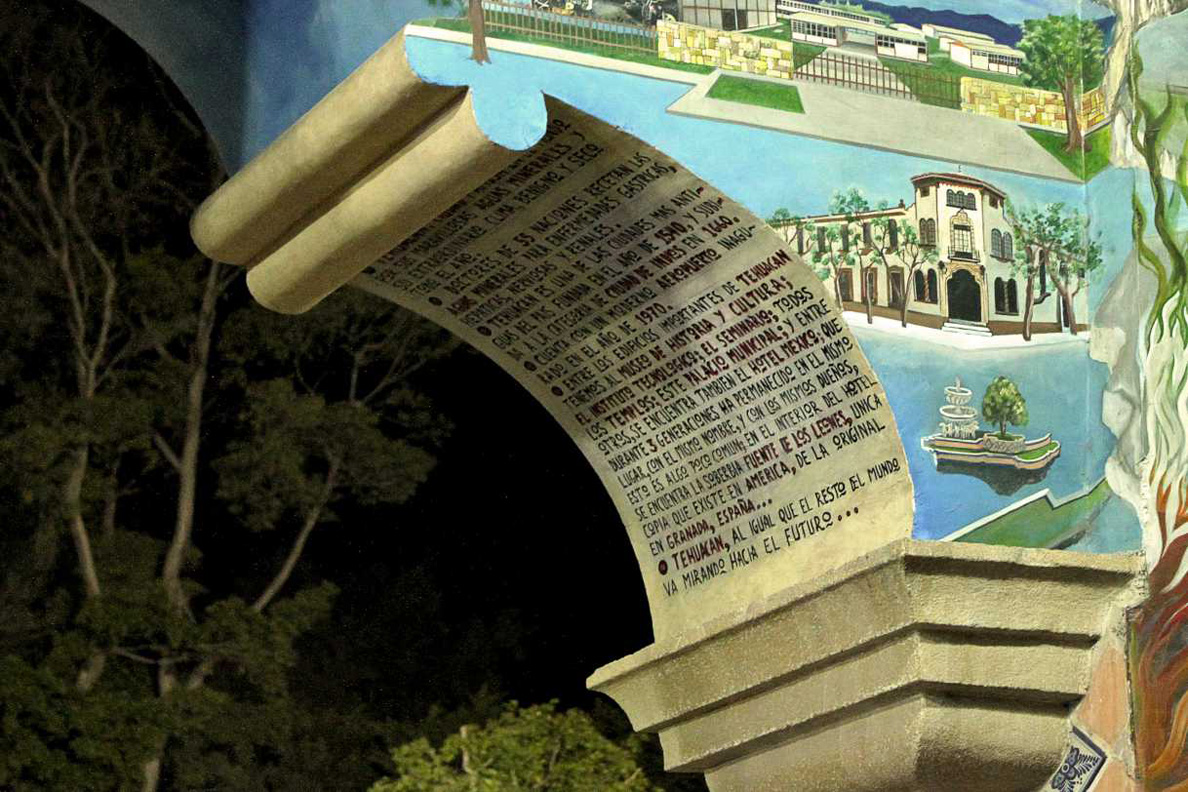 AGUAS MINERALES
CLIMA BENIGNO, Y SECO
DOCTORES DE 35 NACIONES RECETAN LAS
AGUAS MINERALES PARA ENFERMEDADES GASTRICAS,
HEPATICAS, NERVIOSAS Y RENALES.
TEHUACAN ES UNA DE LAS CIUDADES MAS ANTI-
GUAS DEL PAIS FUNDADA EN EL AÑO DE 1540, Y SUBI-
DA A LA CATEGORIA DE CIUDAD DE INDIOS EN 1660.
● CUENTA CON UN MODERNO AEROPUERTO INAGU-
RADO EN EL AÑO DE 1970.
● ENTRE LOS EDIFICIOS IMPORTANTES DE TEHUACAN
TENEMOS AL MUSEO DE HISTORIA Y CULTURA;
EL INSTITUTO TECNOLOGICO; EL SEMINARIO; TODOS
LOS TEMPLOS; ESTE PALACIO MUNICIPAL; Y ENTRE
OTROS, SE ENCUENTRA TAMBIEN EL HOTEL MEXICO, QUE
DURANTE 3 GENERACIONES HA PERMANECIDO EN EL MISMO
LUGAR CON EL MISMO NOMBRE, Y CON LOS MISMOS DUEÑOS,
ESTO ES ALGO POCO COMUN; EN EL INTERIOR DEL HOTEL
SE ENCUENTRA LA SOBERBIA FUENTE DE LOS LEONES, UNICA
COPIA QUE EXISTE EN AMERICA, DE LA ORIGINAL
EN GRANADA, ESPAÑA...
● TEHUACAN, AL IGUAL QUE EL RESTO DEL MUNDO
VA MIRANDO HACIA EL FUTURO...